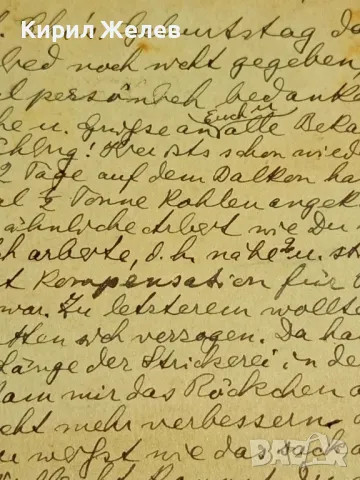 Кирил Желев
Geburtstag da
ied noch nicht gegeben
l persönlich bedanke
Euch u.
he u. Grüsse an alle Beka
chlug! Hier ists schon wied
2 Tage auf dem Balkon ha
al ½ Tonne Kohlen angek
ähnliche Arbeit wie Du
ch arbeite, d.h. nähe u. st
t Kompensation für
war. Zu letzterem wollte
tten sich verzogen. Da ha
Länge der Strickerei in de
am mir das Röckchen
cht mehr verbessern
u weißt wie das
bazar